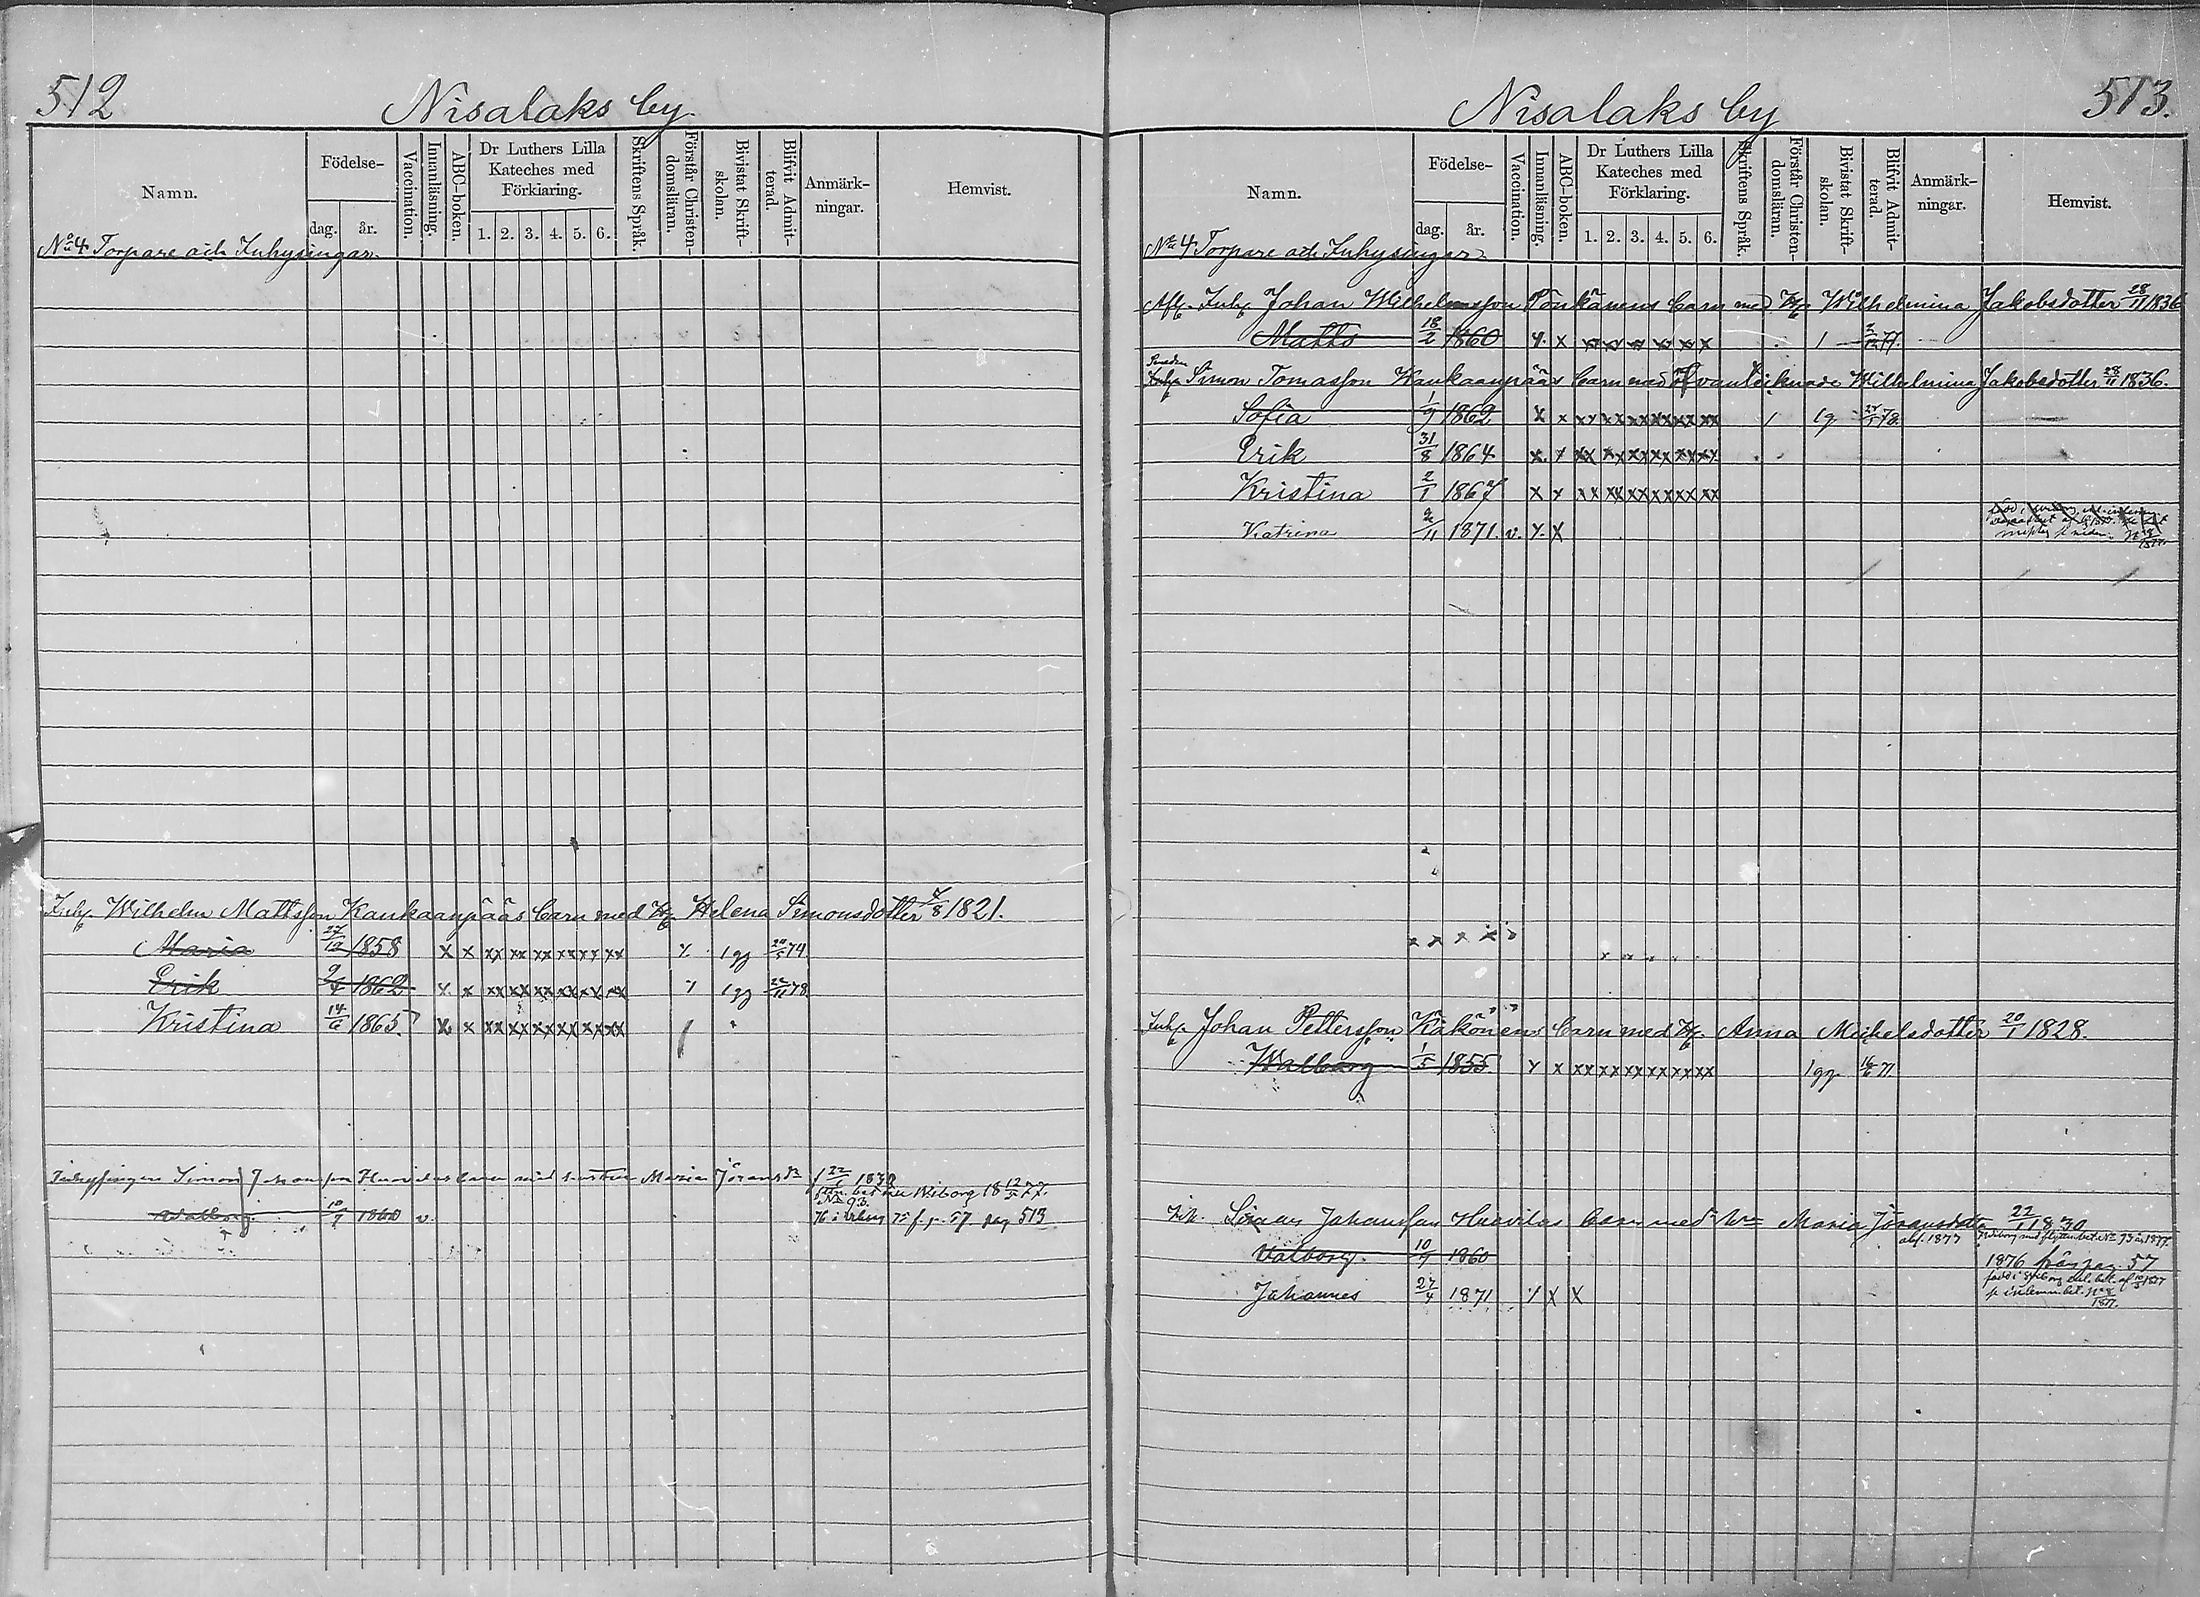 512
Nisalaks by
Namn.
Födelse-
dag.
år.
Vaccination.
Innanläsning.
ABC-boken.
Dr Luthers Lilla
Kateches med
Förklaring.
1. 2. 3. 4. 5. 6.
Skriftens Språk.
Förstår Christen-
domsläran.
Bivistat Skrift-
skolan.
Blifvit Admit-
terad.
Anmärk-
ningar.
Hemvist.
No 4 Torpare och Inhysingar
Inhs Wilhelm Mattsson Kaukaanpääs barn med H. Helena Simonsdotter 7/8 1821.
Maria 27/12 1858 x x xx xx xx xx xx xx 1 gg 74
Erik 2/4 1862 x x xx xx xx xx xx xx 1 gg 78
Kristina 14/6 1865 x x xx xx xx xx xx xx
Inhysingen Simon Johansson barn med hustru Maria 22/1 1830
Wiborg 18 12/5 77.
Walborg 10/9 1860 v. pag 513
513.
Nisalaks by
Namn.
Födelse-
dag.
år.
Vaccination.
Innanläsning.
ABC-boken.
Dr Luthers Lilla
Kateches med
Förklaring.
1. 2. 3. 4. 5. 6.
Skriftens Språk.
Förstår Christen-
domsläran.
Bivistat Skrift-
skolan.
Blifvit Admit-
terad.
Anmärk-
ningar.
Hemvist.
No 4 Torpare och Inhysingar
Afl. Inhs Johan Wilhelmsson Pönkänens barn med H. Wilhelmina Jakobsdotter 28/11 1836
Matts 18/2 1860 x x x x x x x 1 77.
Simon Tomasson Kaukaanpääs barn med ofvantecknade Wilhelmina Jakobsdotter 28/11 1836.
Sofia 1/9 1862 x x xx xx xx xx xx xx 1 1 g 78
Erik 31/8 1864 x x xx xx xx xx xx xx
Kristina 2/1 1867 x x xx xx xx xx xx xx
Katrina 1871. v. x x
Inhs Johan Pettersson Käkönens barn med H. Anna Michelsdotter 20/1 1828.
Walborg 1/5 1855 x x xx xx xx xx xx xx 1 gg 71
Simon Johansson Huovilas barn med Maria Göransdotter 22/1 1830
1877
Valborg. 10/9 1860 1876 från pag. 57
Johannes 27/4 1871 x x